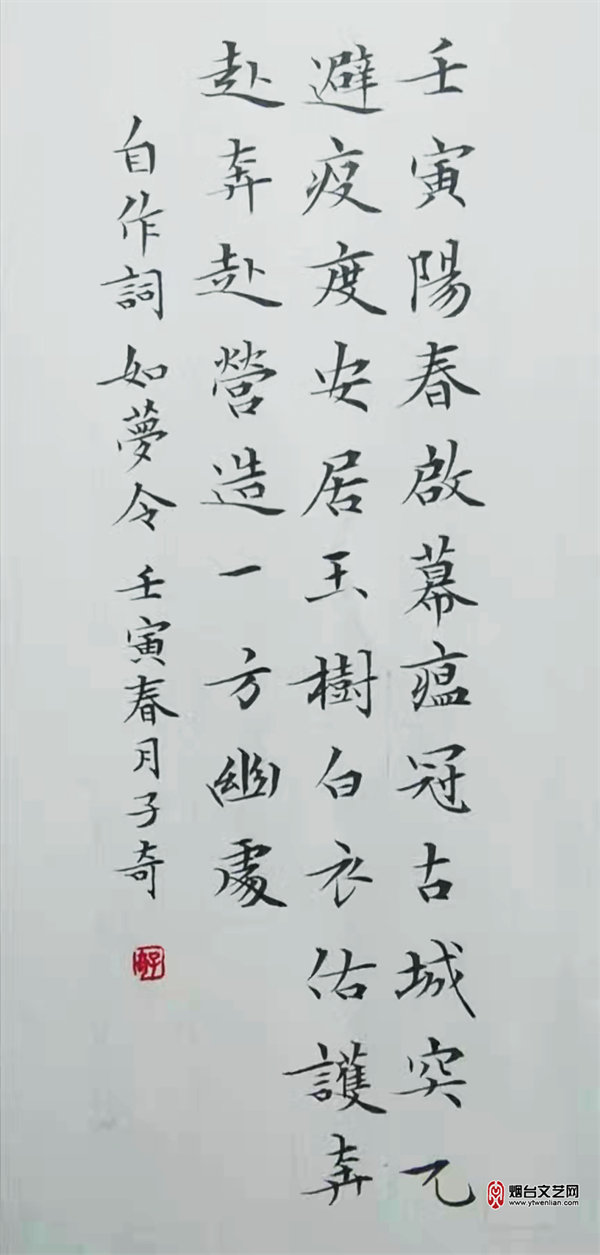 壬寅陽春啟幕瘟冠古城突兀
避疫度安居玉樹白衣佑護奔
赴奔赴營造一方幽處
自作詞如夢令壬寅春月子奇
烟台文艺网
www.ytwenlian.com